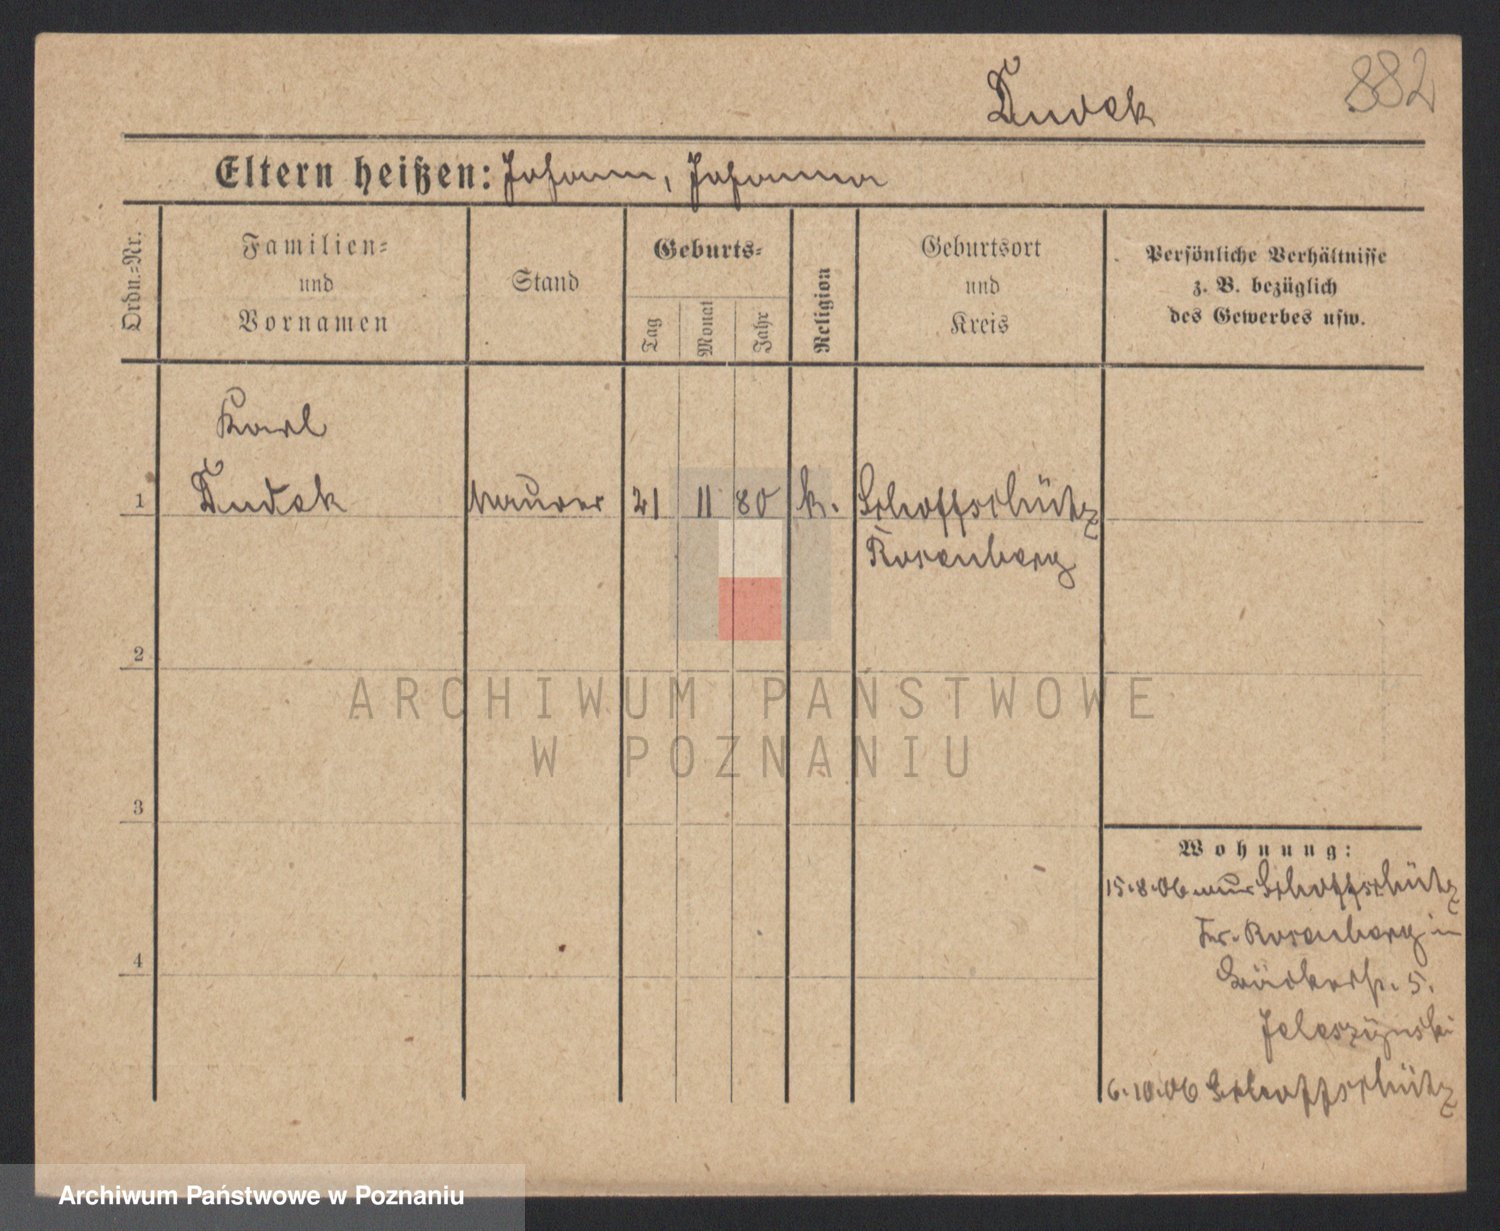 882
Dudek
Eltern heißen: Johann, Johanna
Ordn.=Nr.
Familien=
und
Vornamen
Stand
Geburts=
Tag
Monat
Jahr
Religion
Geburtsort
und
Kreis
Persönliche Verhältnisse
z. B. bezüglich
des Gewerbes usw.
Karl
1 Dudek Maurer 21 11 80 k. Schoffschütz
Rosenberg
2
ARCHIWUM PAŃSTWOWE
W POZNANIU
3
Wohnung:
15.8.06 aus Schoffschütz
Kr. Rosenberg in
5.
4
6.10.06 Schoffschütz
Archiwum Państwowe w Poznaniu